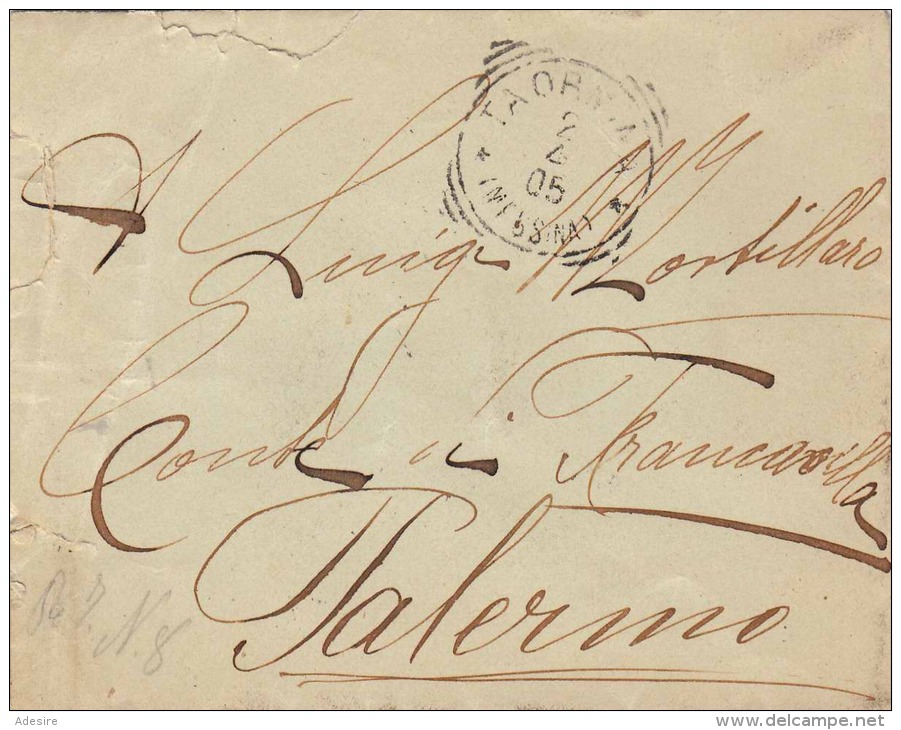 TAORMINA
2
4
05
(MESSINA)
A Luigi Mortillaro
Conte di Francavilla
Palermo
N. 8
Adesire
www.delcampe.net